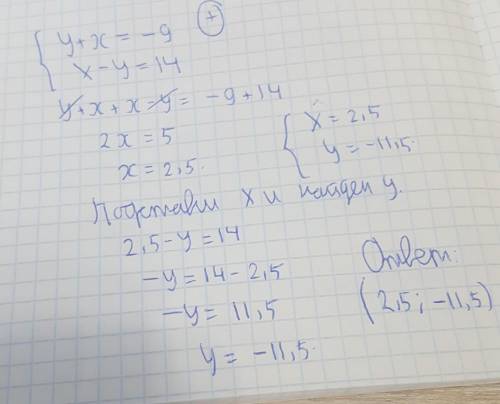 y + x = -9 (+)
x - y = 14
y + x + x - y = -9 + 14
2x = 5
x = 2,5.
x = 2,5
y = -11,5.
Подставим x и найдем y.
2,5 - y = 14
-y = 14 - 2,5
-y = 11,5
y = -11,5.
Ответ:
(2,5; -11,5)